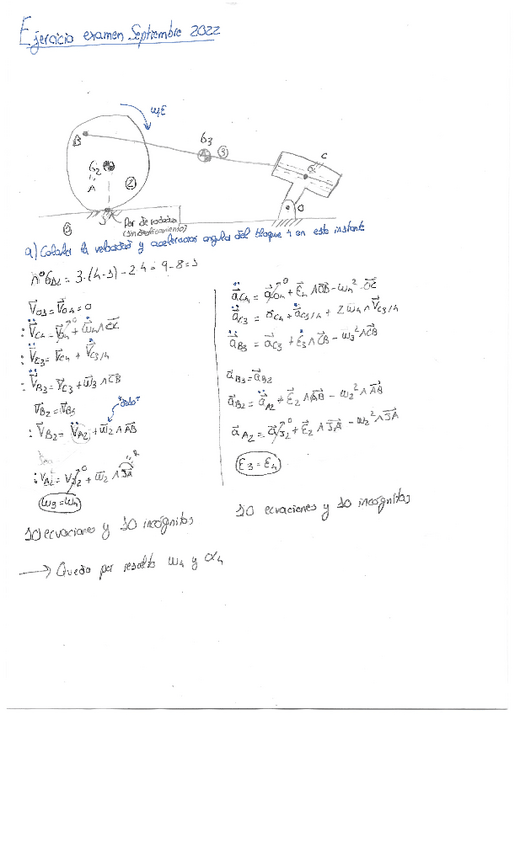 Ejercicio examen Septiembre 2022
ω,E
B
G₃
③
C
G₂
A
②
G₄
O
J
Par de rodadura
(sin deslizamiento)
a) Calcular la velocidad y aceleracion angular del bloque 4 en este instante
nº GDL = 3·(4-1) - 2·4 = 9-8=1
V⃗O1 = V⃗O4 = 0
V⃗C4 = V⃗O4 + ω⃗4 ∧ OC
V⃗C3 = V⃗C4 + V⃗C3/4
V⃗B3 = V⃗C3 + ω⃗3 ∧ CB
V⃗B2 = V⃗B3
V⃗B2 = V⃗A2 + ω⃗2 ∧ AB
VA2 = VJ2 + ω⃗2 ∧ JA
ω3=ω4
10 ecuaciones y 10 incognitas
→ Queda por resolver ω4 y α4
a⃗C4 = a⃗O4 + ε⃗4 ∧ OC - ω4² · OC
a⃗C3 = a⃗C4 + a⃗C3/4 + 2 ω⃗4 ∧ V⃗C3/4
a⃗B3 = a⃗C3 + ε⃗3 ∧ CB - ω3² ∧ CB
a⃗B3 = a⃗B2
a⃗B2 = a⃗A2 + ε⃗2 ∧ AB - ω2² ∧ AB
a⃗A2 = a⃗J2 + ε⃗2 ∧ JA - ω2² ∧ JA
ε3 = ε4
10 ecuaciones y 10 incognitas